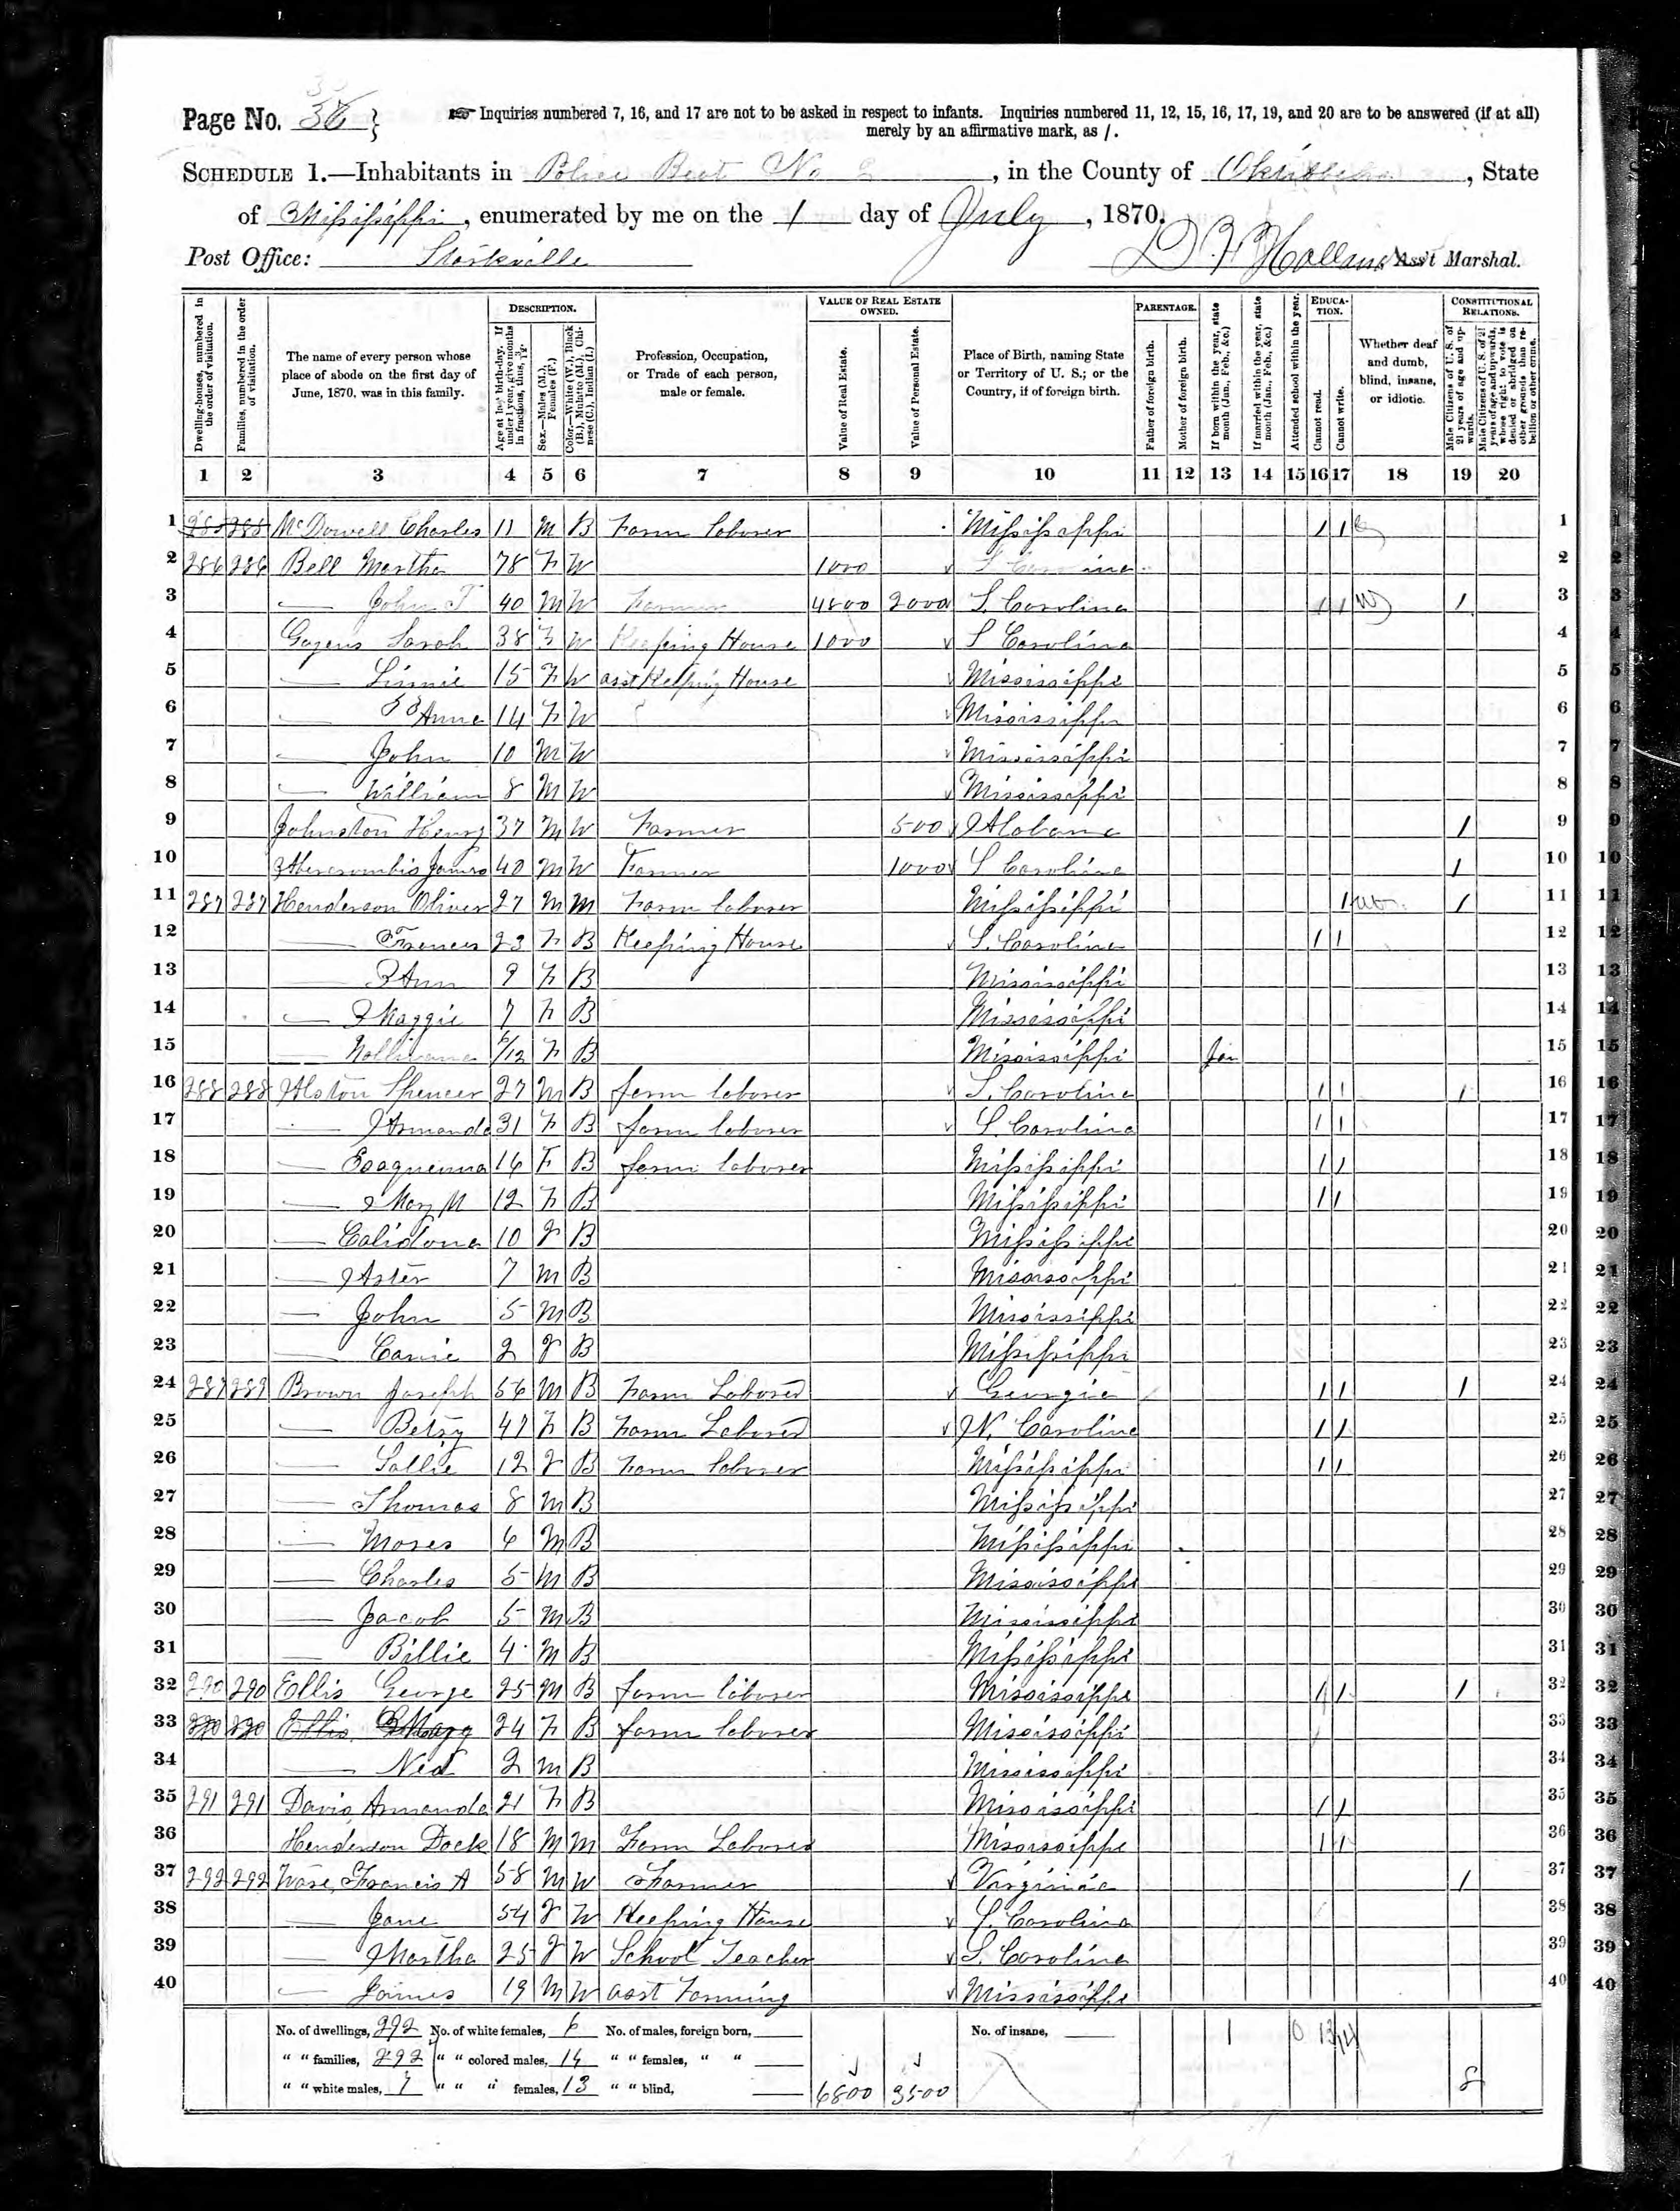 Page No. 38
Inquiries numbered 7, 16, and 17 are not to be asked in respect to infants. Inquiries numbered 11, 12, 15, 16, 17, 19, and 20 are to be answered (if at all)
merely by an affirmative mark, as /.
SCHEDULE 1.—Inhabitants in Police Beat No 2, in the County of Oktibbeha, State
of Mississippi, enumerated by me on the 1 day of July, 1870.
Post Office: Starkville Ass't Marshal.
Dwelling-houses, numbered in the order of visitation.
Families, numbered in the order of visitation.
The name of every person whose place of abode on the first day of June, 1870, was in this family.
DESCRIPTION.
Age at last birth-day. If under 1 year, give months in fractions, thus, 3/12.
Sex.—Males (M.), Females (F.)
Color.—White (W.), Black (B.), Mulatto (M.), Chinese (C.), Indian (I.)
Profession, Occupation, or Trade of each person, male or female.
VALUE OF REAL ESTATE OWNED.
Value of Real Estate.
Value of Personal Estate.
Place of Birth, naming State or Territory of U. S.; or the Country, if of foreign birth.
PARENTAGE.
Father of foreign birth.
Mother of foreign birth.
If born within the year, state month (Jan., Feb., &c.)
If married within the year, state month (Jan., Feb., &c.)
Attended school within the year.
EDUCATION.
Cannot read.
Cannot write.
Whether deaf and dumb, blind, insane, or idiotic.
CONSTITUTIONAL RELATIONS.
Male Citizens of U. S. of 21 years of age and upwards.
Male Citizens of U. S. of 21 years of age and upwards, whose right to vote is denied or abridged on other grounds than rebellion or other crime.
1 2 3 4 5 6 7 8 9 10 11 12 13 14 15 16 17 18 19 20
1 285 285 McDowell Charles 11 M B Farm laborer Mississippi / / 1
2 286 286 Bell Martha 78 F W 1000 S Carolina 2
3 — John T 40 M W Farmer 4800 2000 S. Carolina / / / 3
4 Sarah 38 F W Keeping House 1000 S Carolina 4
5 — Linnie 15 F W asst Keeping House Mississippi 5
6 — Anne 14 F W Mississippi 6
7 — John 10 M W Mississippi 7
8 — William 8 M W Mississippi 8
9 Johnston Henry 37 M W Farmer 500 Alabama / 9
10 Abercrombie James 40 M W Farmer 1000 S Carolina / 10
11 287 287 Henderson Oliver 27 M M Farm laborer Mississippi / / 11
12 — Frances 23 F B Keeping House S. Carolina / / 12
13 — Ann 9 F B Mississippi 13
14 — Maggie 7 F B Mississippi 14
15 — 6/12 F B Mississippi Jan 15
16 288 288 Alston Spencer 27 M B farm laborer S. Carolina / / / 16
17 — Armanda 31 F B farm laborer S. Carolina / / 17
18 — 16 F B farm laborer Mississippi / / 18
19 — Mary M 12 F B Mississippi / / 19
20 — Calidona 10 F B Mississippi 20
21 — Aster 7 M B Mississippi 21
22 — John 5 M B Mississippi 22
23 — Carrie 2 F B Mississippi 23
24 289 289 Brown Joseph 56 M B Farm Laborer Georgia / / / 24
25 — Betsy 47 F B Farm Laborer N. Carolina / / 25
26 — Sallie 12 F B Farm laborer Mississippi / / 26
27 — Thomas 8 M B Mississippi 27
28 — Moses 6 M B Mississippi 28
29 — Charles 5 M B Mississippi 29
30 — Jacob 5 M B Mississippi 30
31 — Billie 4 M B Mississippi 31
32 290 290 Ellis George 25 M B farm laborer Mississippi / / / 32
33 290 290 Ellis Mary 24 F B farm laborer Mississippi / 33
34 — Ned 2 M B Mississippi 34
35 291 291 Davis Armanda 21 F B Mississippi / / 35
36 Henderson Dock 18 M M Farm Laborer Mississippi / / 36
37 292 292 Ware, Francis A 58 M W Farmer Virginia / 37
38 — Jane 54 F W Keeping House S. Carolina 38
39 — Martha 25 F W School Teacher S. Carolina 39
40 — James 19 M W asst Farming Mississippi 40
No. of dwellings, 292 No. of white females, 6 No. of males, foreign born, No. of insane, 1 0 13 14
" " families, 292 " " colored males, 14 " " females, " "
" " white males, 7 " " " females, 13 " " blind, 6800 3500 8